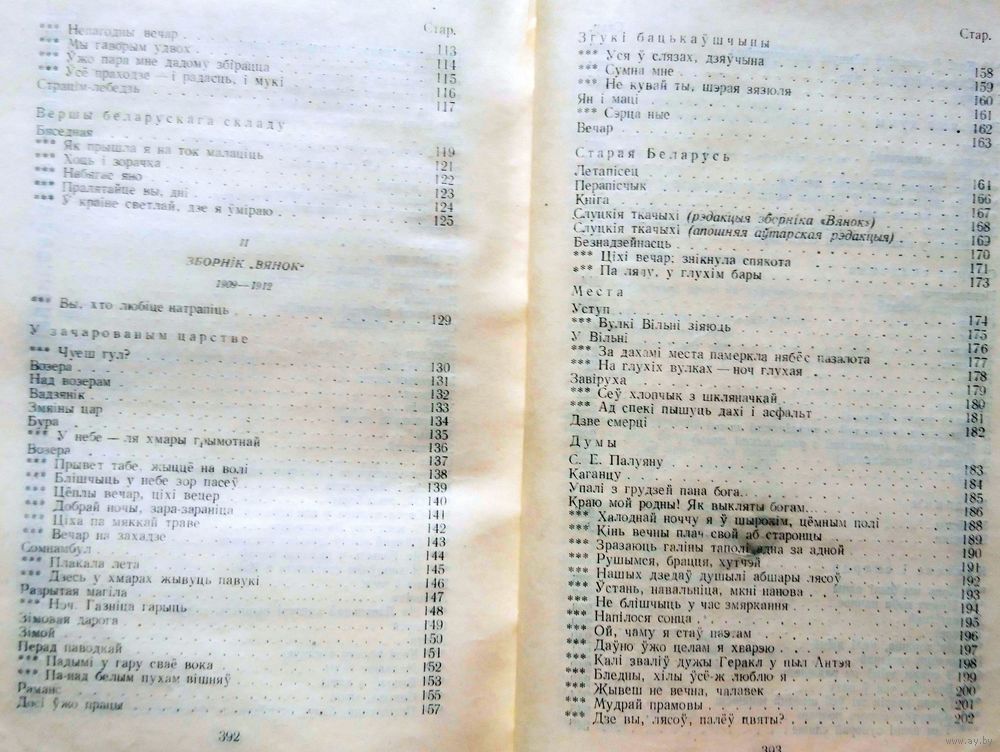 Стар.
*** Непагодны вечар . 113
*** Мы гаворым удвох . 114
*** Ўжо пара мне дадому збірацца . 115
*** Усё праходзе — і радасць, і мукі 116
Страцім-лебедзь 117
Вершы беларускага складу
Бяседная 119
*** Як прышла я на ток малаціць 121
*** Хоць і зорачка 122
*** Набягае яно 123
*** Пралятайце вы, дні 124
*** У краіне светлай, дзе я ўміраю 125
II
ЗБОРНІК „ВЯНОК“
1909—1912
*** Вы, хто любіце натрапіць 129
У зачарованым царстве
*** Чуеш гул? 130
Возера 131
Над возерам 132
Вадзянік 133
Змяіны цар 134
Бура 135
*** У небе — ля хмары грымотнай 136
Возера 137
*** Прывет табе, жыццё на волі 138
*** Блішчыць у небе зор пасеў 139
*** Цёплы вечар, ціхі вецер 140
*** Добрай ночы, зара-зараніца 141
*** Ціха па мяккай траве 142
*** Вечар на захадзе 143
Сомнамбул 144
*** Плакала лета 145
*** Дзесь у хмарах жывуць павукі 146
Разрытая магіла 147
*** Ноч. Газніца гарыць 148
Зімовая дарога 149
Зімой 150
Перад паводкай 151
*** Падымі у гару сваё вока 152
*** Па-над белым пухам вішняў 153
Раманс 155
Досі ўжо працы 157
392
Стар.
Згукі бацькаўшчыны
*** Уся ў слязах, дзяўчына 158
*** Сумна мне 159
*** Не кувай ты, шэрая зязюля 160
Ян і маці 161
*** Сэрца ные 162
Вечар 163
Старая Беларусь
Летапісец 164
Перапісчык 166
Кніга 167
Слуцкія ткачыхі (рэдакцыя зборніка «Вянок») 168
Слуцкія ткачыхі (апошняя аўтарская рэдакцыя) . 169
Безнадзейнасць 170
*** Ціхі вечар; знікнула спякота 171
*** Па ляду, у глухім бары 173
Места
Уступ 174
*** Вулкі Вільні зіяюць 175
У Вільні 176
*** За дахамі места памеркла нябёс пазалота 177
*** На глухіх вулках — ноч глухая 178
Завіруха 179
*** Сеў хлопчык з шкляначкай 180
*** Ад спекі пышуць дахі і асфальт 181
Дзве смерці 182
Думы
С. Е. Палуяну 183
Каганцу 184
Упалі з грудзей пана бога. 185
Краю мой родны! Як выкляты богам... 186
*** Халоднай ноччу я ў шырокім, цёмным полі 188
*** Кінь вечны плач свой аб старонцы 189
*** Зразаюць галіны таполі адна за адной 190
*** Рушымся, брацця, хутчэй 191
*** Нашых дзедаў душылі абшары лясоў 192
*** Ўстань, навальніца, мкні нанова 193
*** Не блішчыць у час змяркання 194
*** Напілося сонца 195
*** Ой, чаму я стаў паэтам 196
*** Даўно ўжо целам я хварэю 197
*** Калі зваліў дужы Геракл у пыл Антэя 198
*** Бледны, хілы ўсё-ж люблю я 199
*** Жывеш не вечна, чалавек 200
*** Мудрай прамовы 201
*** Дзе вы, лясоў, палёў цвяты? 202
393
www.ay.by